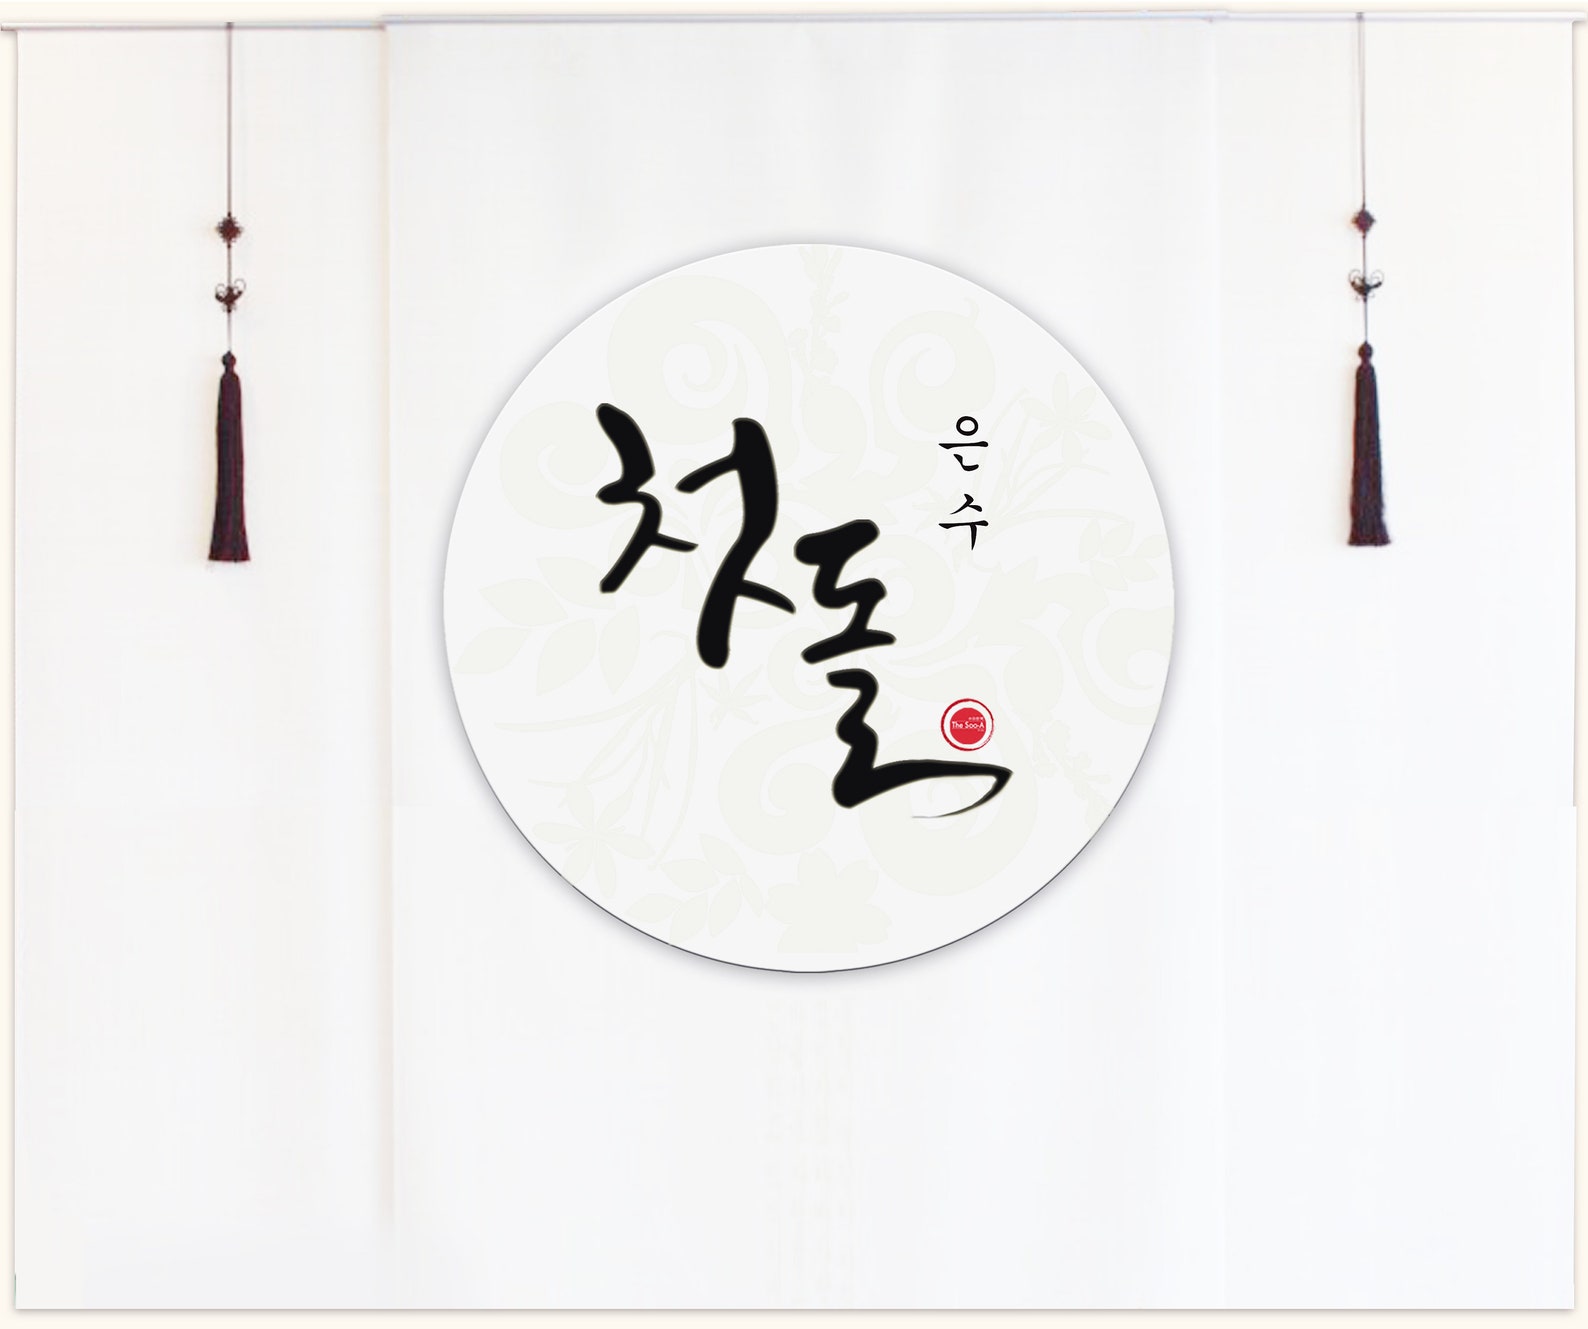 첫돌
은수
The Soo-A